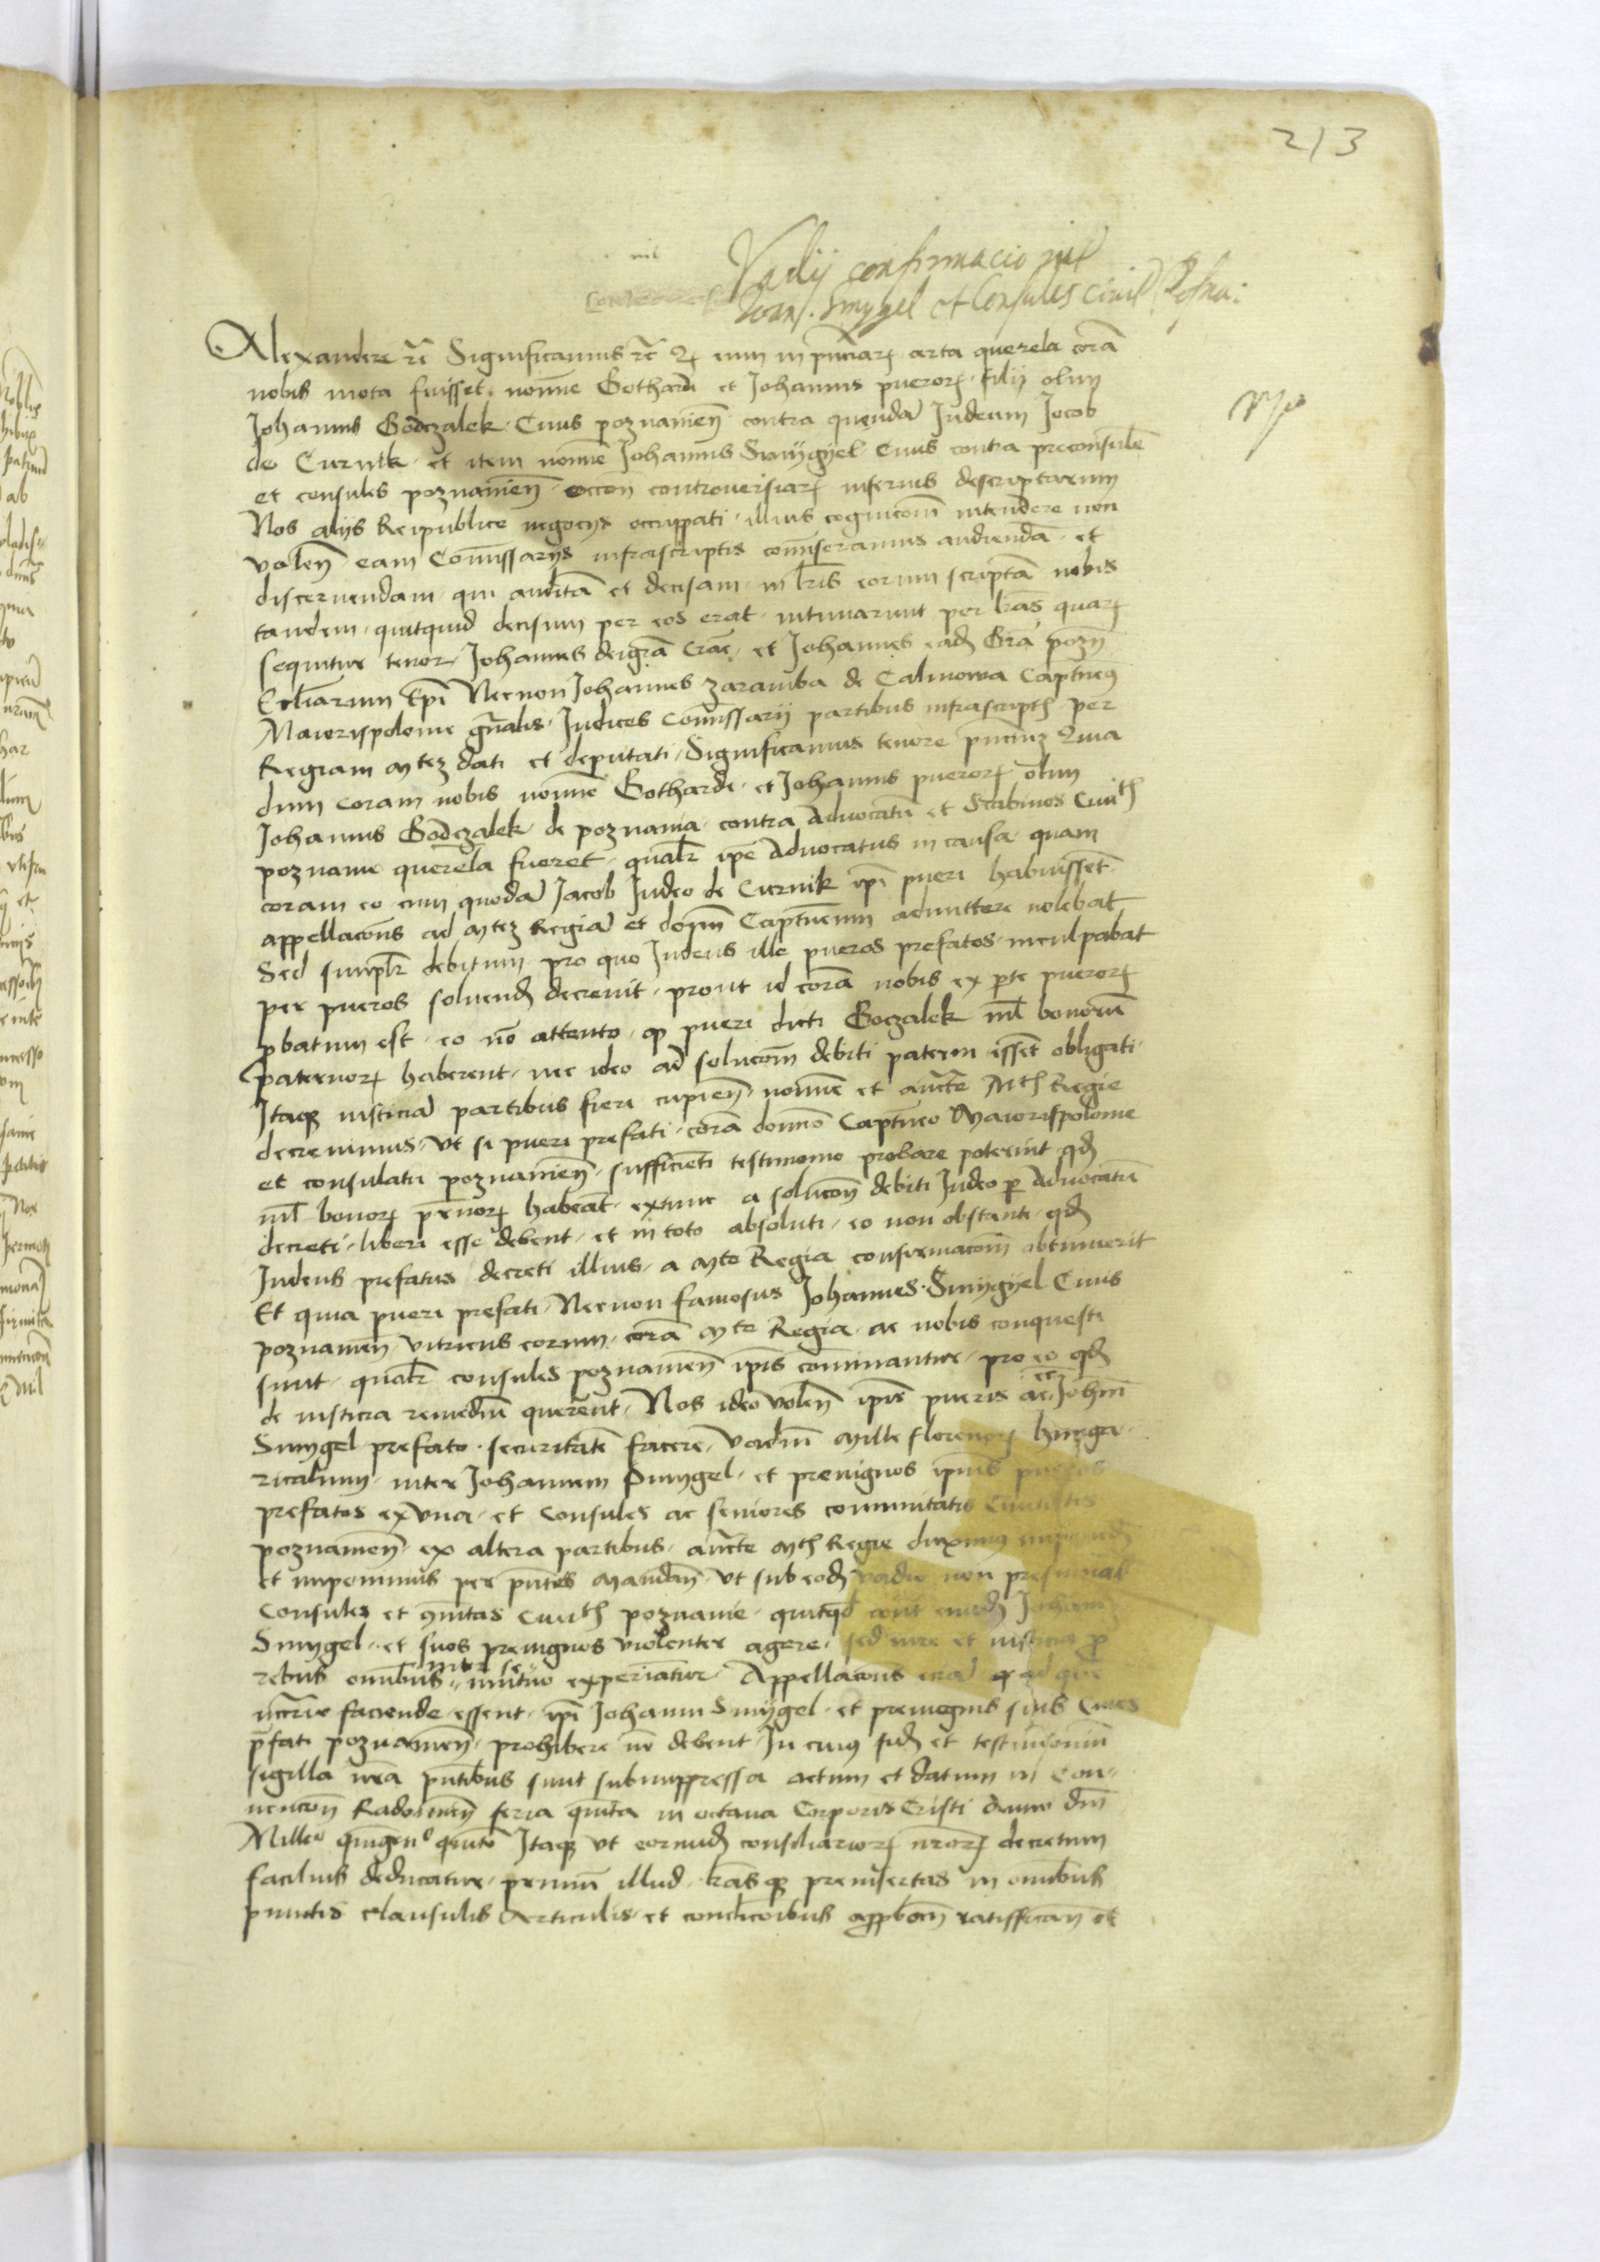 213
Vadij confirmacio inter
Ioan. Smygel et Consules Civit. Posna:
Alexander etc Significamus etc Quia cum in presenciarum arta querela corā
nobis mota fuisset nomīe Gothardi et Johannis puerorum filij olim
Johannis Godczalek Civis poznanien̄ contra quendā Judeum Jacob
de Curnik et item nomīe Johannis Smygyel Civis contra preconsulē
et consules poznanien̄ occōn controversiarum inferius descriptarum
Nos alijs Reipublice negocijs occuppati illius cognicōni intendere non
valen̄ eam Cōmissarijs infrascriptis cōmiseramus audiendā et
discernendam qui auditā et decisam in lr̄is eorum scriptā nobis
tandem quitquid decisum per eos erat intimarunt per lr̄as quarum
sequitur tenor Johannes dei grā Crac et Johannes eadē Grā pozn̄
Eccl̄iarum Epī Necnon Johannes Zaramba de Calinowa Capitneus
Maiorispolonie gn̄alis Judices Cōmissarij partibus infrascriptis per
Regiam Mtez dati et deputati Significamus tenore pn̄cium Quia
dum coram nobis nomīe Gothardi et Johannis puerorum olim
Johannis Godczalek de poznania contra Advocatū et Scabinos Civitatis
poznanie querela fieret qualr̄ ipē Advocatus in causa quam
coram eo cum quodā Jacob Judeo de Curnik ipī pueri habuissent
appellacōns ad Mtez Regiā et dom̄ Capitneum admittere nolebat
Sed simplr̄ debitum pro quo Judeus ille pueros prefatos inculpabat
per pueros solvendū decrevit prout id corā nobis ex parte puerorum
probatum est eo nō attento quod pueri dicti Goczalek nil bonorum
paternorum haberent nec ideo ad solucōm debiti paterni essent obligati
Itaque iusticiā partibus fieri cupien̄ nomīe et auctte Mtis Regie
decrevimus ut si pueri prefati corā domno Capitneo Maiorispolonie
et consulatu poznanien̄ sufficienti testimonio probare poterint quod
nil bonorum paternorum habeāt extunc a solucōn debiti Judeo per Advocatū
decreti liberi esse debent et in toto absoluti eo non obstanti quod
Judeus prefatus decreti illius a Mte Regia confirmacōm obtinuerit
Et quia pueri prefati Necnon famosus Johannes Smygyel Civis
poznanien̄ vitricus eorum corā Mte Regia ac nobis conquesti
sunt qualr̄ consules poznanien̄ ipīs comminantur pro eo quod
de iusticia remediū querent Nos ideo volen̄ ipīs pueris ac Johanī
Smygel prefato securitatē facere vadiū Mille florenorum hunga
ricalium inter Johannem Smygel et prevignos ipius pueros
prefatos ex una et Consules ac seniores communitatis Civitatis
poznanien̄ ex altera partibus auctte Mtis Regie duximus imponendū
et imponimus per pn̄tes Mandan̄ ut sub eodē vadio non presumāt
Consules et cōitas Civitatis poznanie quitquid contra eundē Johannē
Smygel et suos prevignos violenter agere sed iure et iusticia pro
rebus omnibus inter se mutuo experiantur Appellacōns eciā si ad que
necessarie faciende essent ipī Johanni Smygel et prevignis suis Cives
prefati poznanien̄ prohibere nō debent In cuius fidē et testimoniū
sigilla nr̄a pn̄tibus sunt subimpressa actum et datum in Con
vencōn Radomien̄ feria quinta in octava Corporis Cristi Anno dnī
Millo quingeno quinto Itaque ut eorundē consiliariorum nr̄orum decretum
facilius deducatur premiū illud lr̄as que preinsertas in omnibus
punctis clausulis Articulis et condicōibus approbān ratifficān et